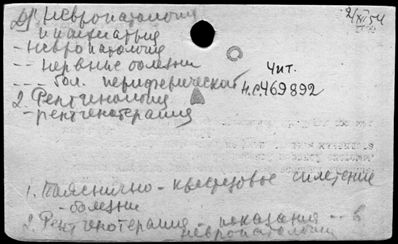 Невропатология 2/XI 54
и психиатрия
- невропатология
-- нервные болезни
--- бол. периферической
Чит.
н.с. 469892
2. Рентгенология
- рентгенотерапия
1. Пояснично-крестцовое сплетение
- болезни
2. Рентгенотерапия - показания -- в
невропатологии